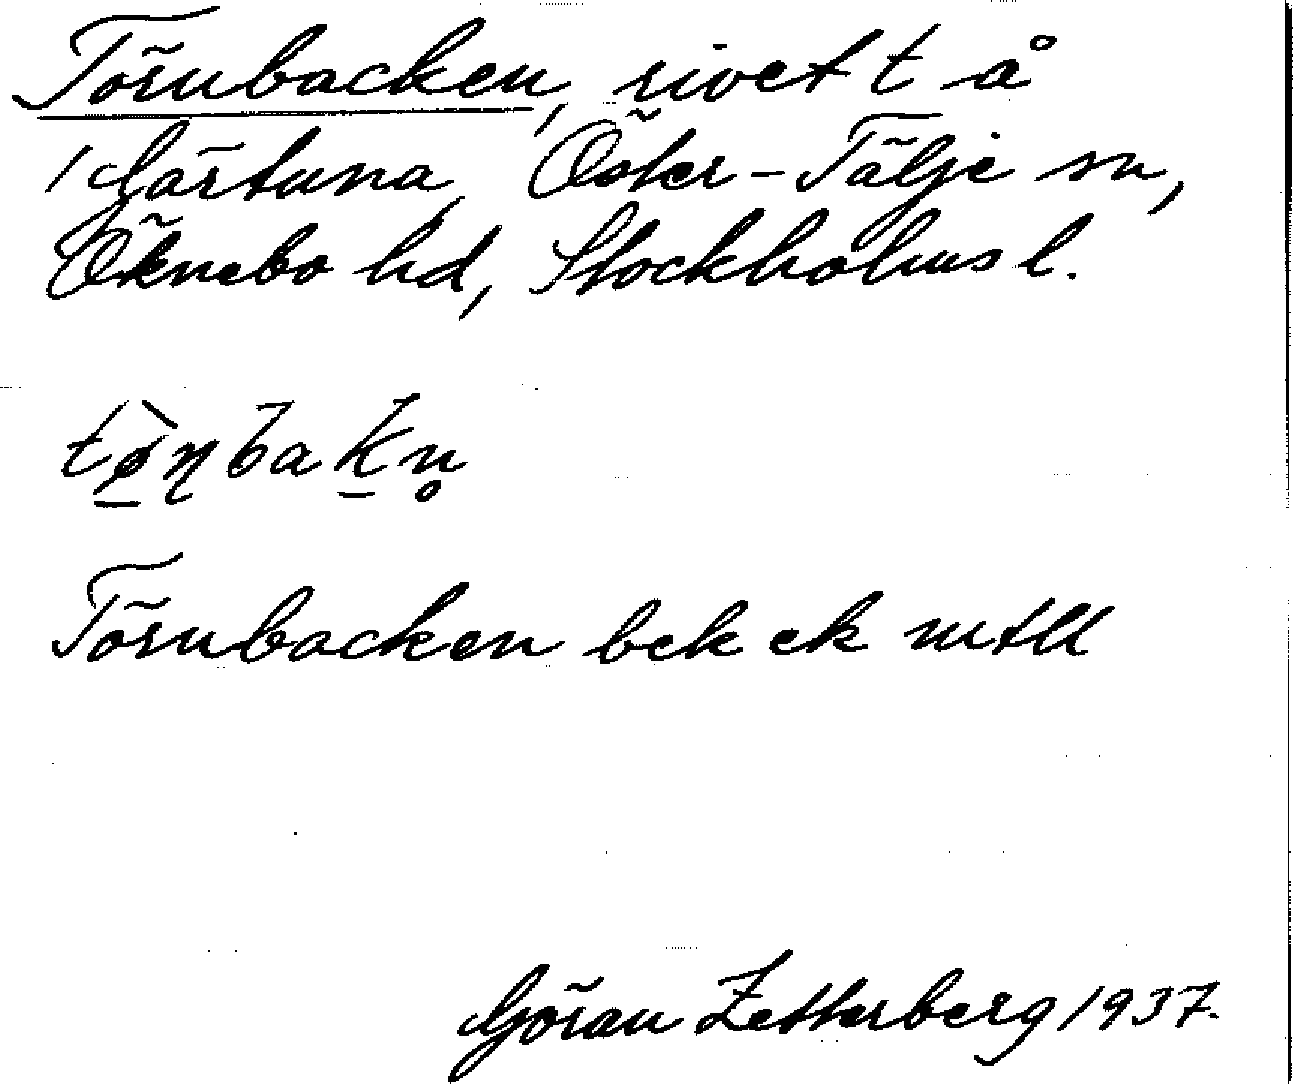 Törnbacken, rivet t å
1 Gärtuna, Öster-Tälje sn,
Öknebo hd, Stockholms l.
Törnbacken bek ek mtll
Göran Zetterberg 1937.